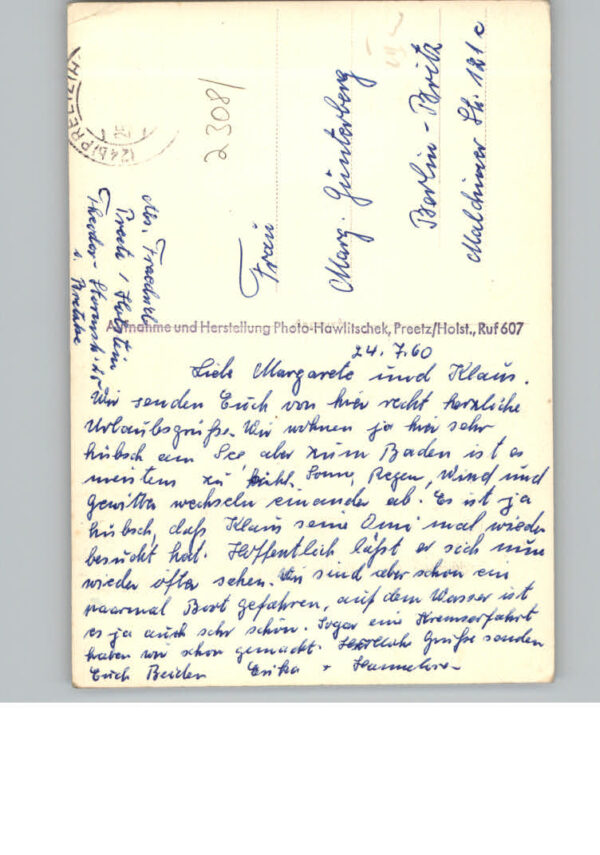 (24b) PREETZ
2308/
Frau
Marg. Günterberg
Berlin-Britz
Malchiner Str. 121c
Abs. Friedrich
Preetz / Holstein
Theodor-Stormstr. 25
b.
Aufnahme und Herstellung Photo-Hawlitschek, Preetz/Holst., Ruf 607
24.7.60
Liebe Margarete und Klaus.
Wir senden Euch von hier recht herzliche
Urlaubsgrüße. Wir wohnen ja hier sehr
hübsch am See, aber zum Baden ist es
meistens zu kühl. Sonne, Regen, Wind und
Gewitter wechseln einander ab. Es ist ja
hübsch, daß Klaus seine Omi mal wieder
besucht hat. Hoffentlich läßt er sich nun
wieder öfter sehen. Wir sind aber schon ein
paarmal Boot gefahren, auf dem Wasser ist
es ja auch sehr schön. Sogar eine Kremserfahrt
haben wir schon gemacht. Herzliche Grüße senden
Euch Beiden Erika + Hannelore